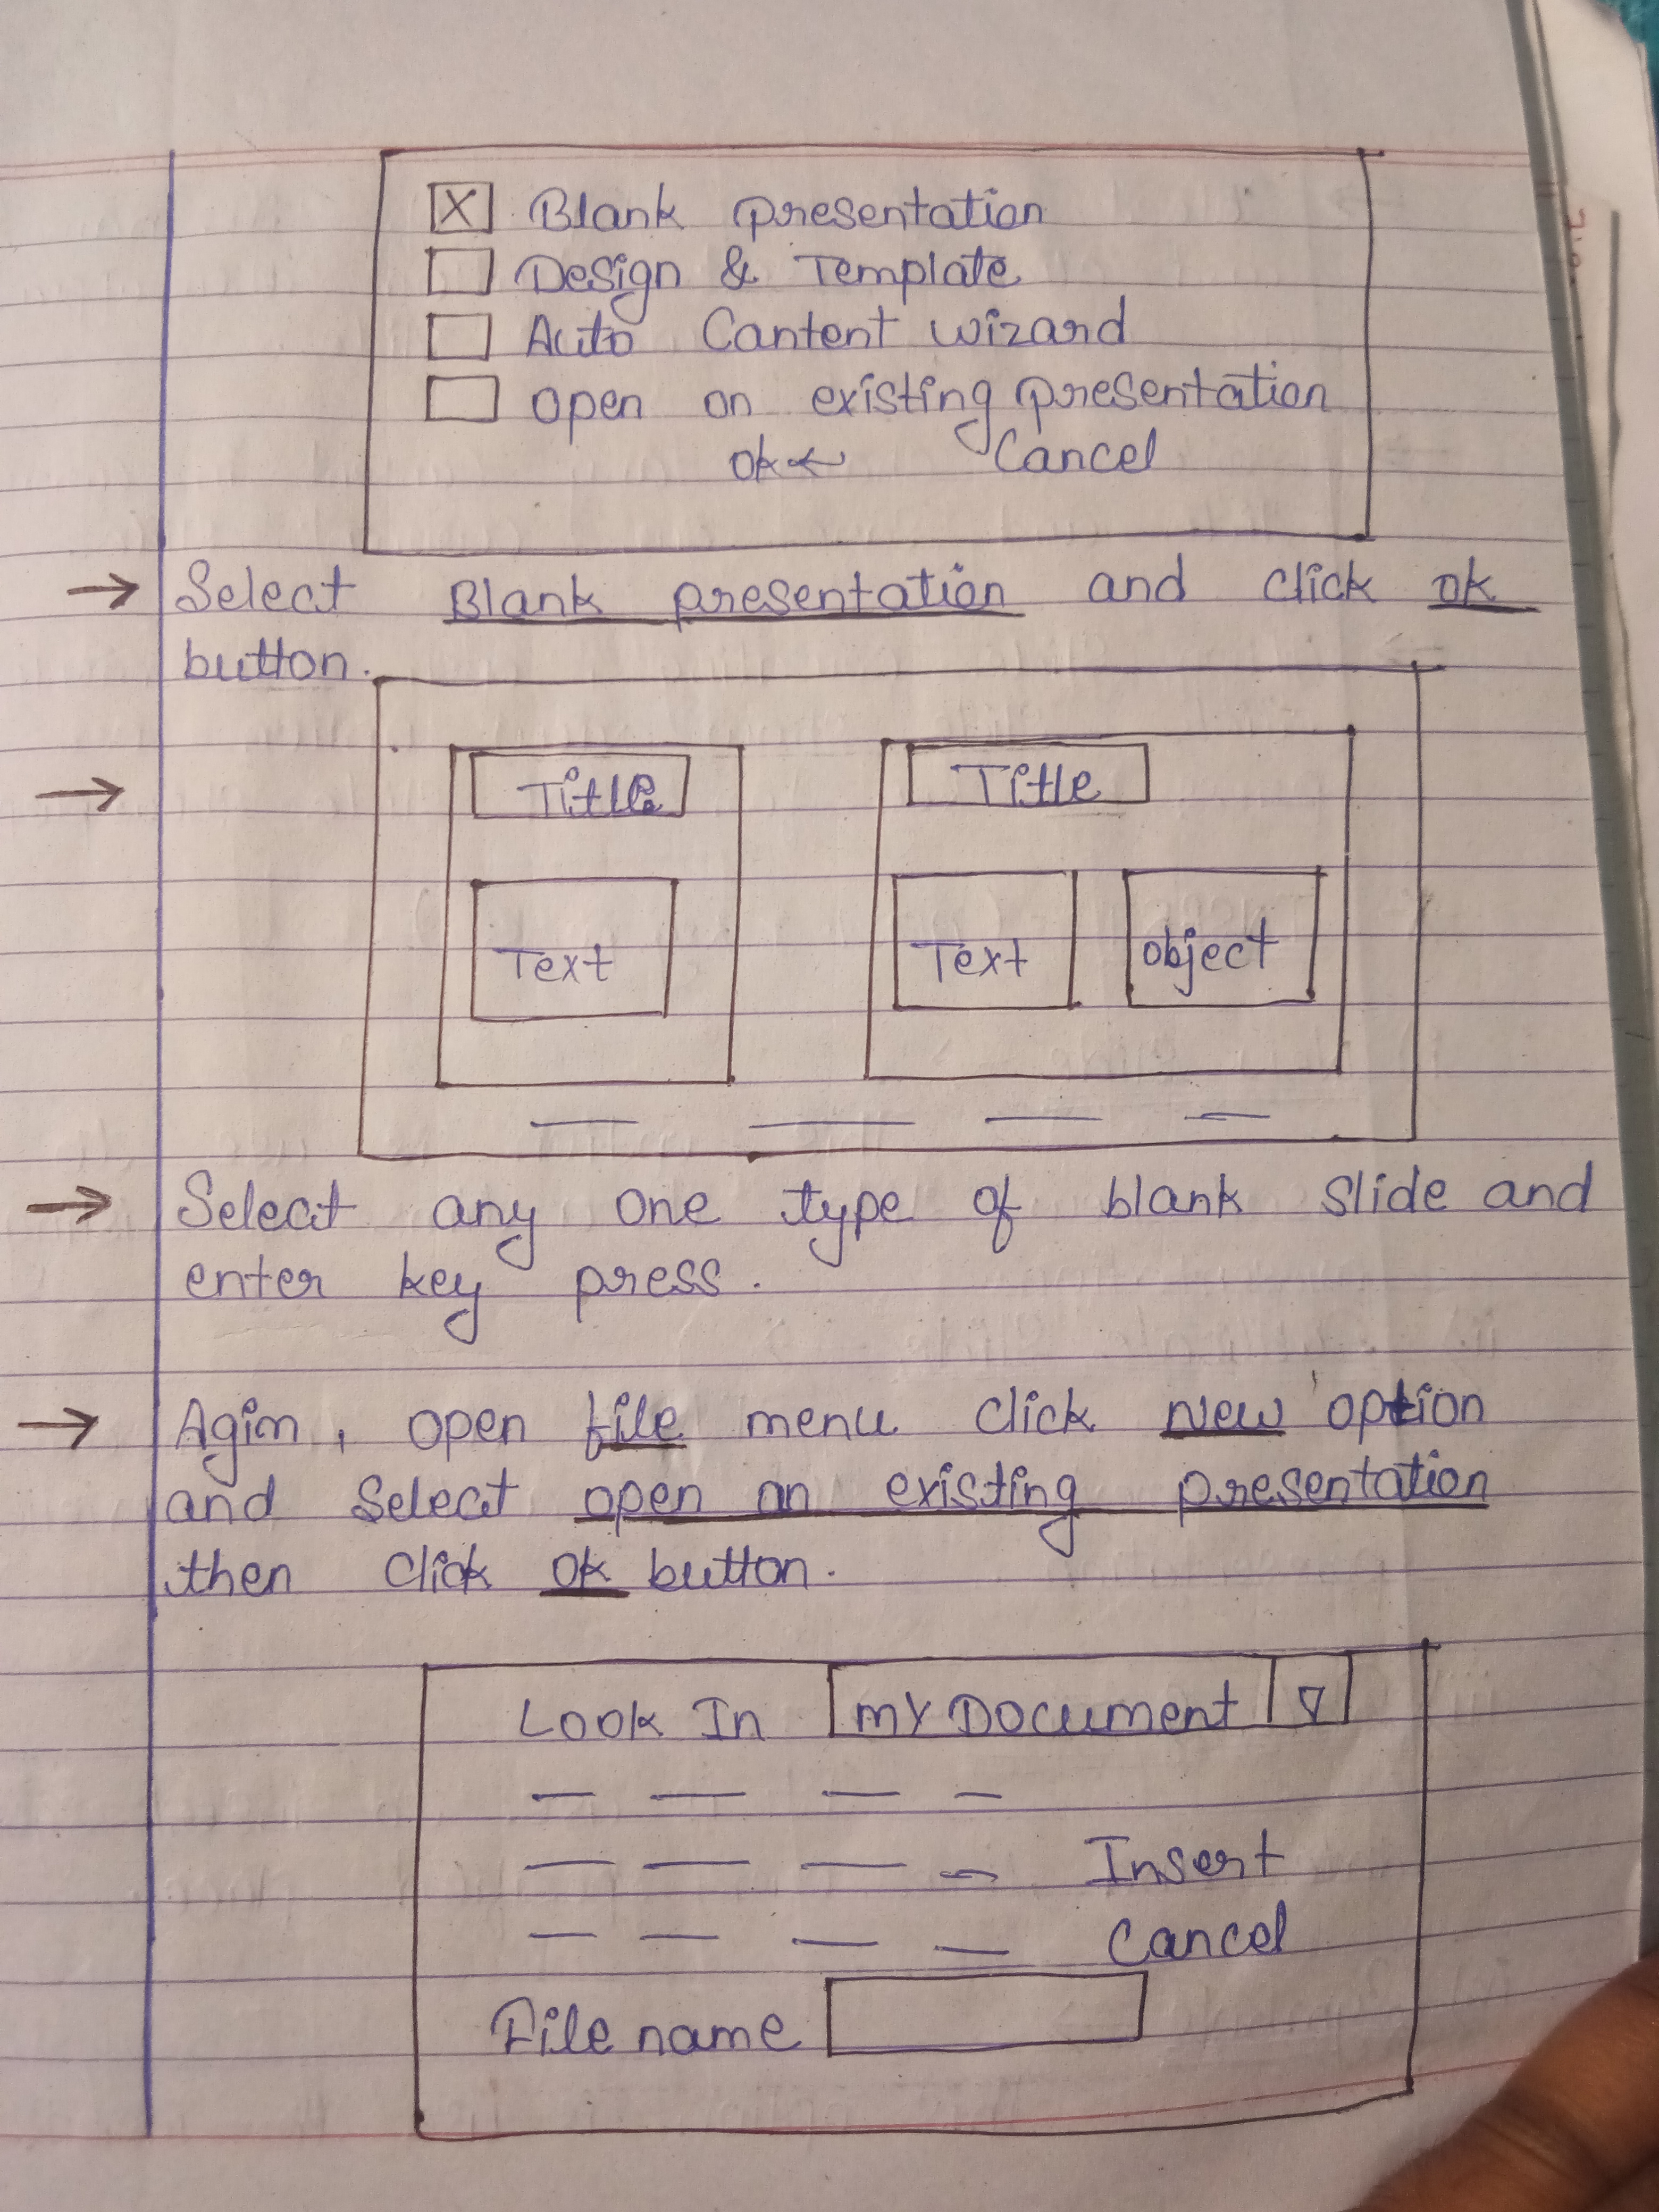 X Blank presentation
Design & Template
Auto Cantent wizard
open on existing presentation
ok Cancel
→ Select Blank presentation and click ok
button.
→ Title Title
Text Text object
→ Select any one type of blank slide and
enter key press.
→ Agin, open file menu click New option
and select open on existing presentation
then click ok button.
Look In MY Document
Insert
Cancel
File name